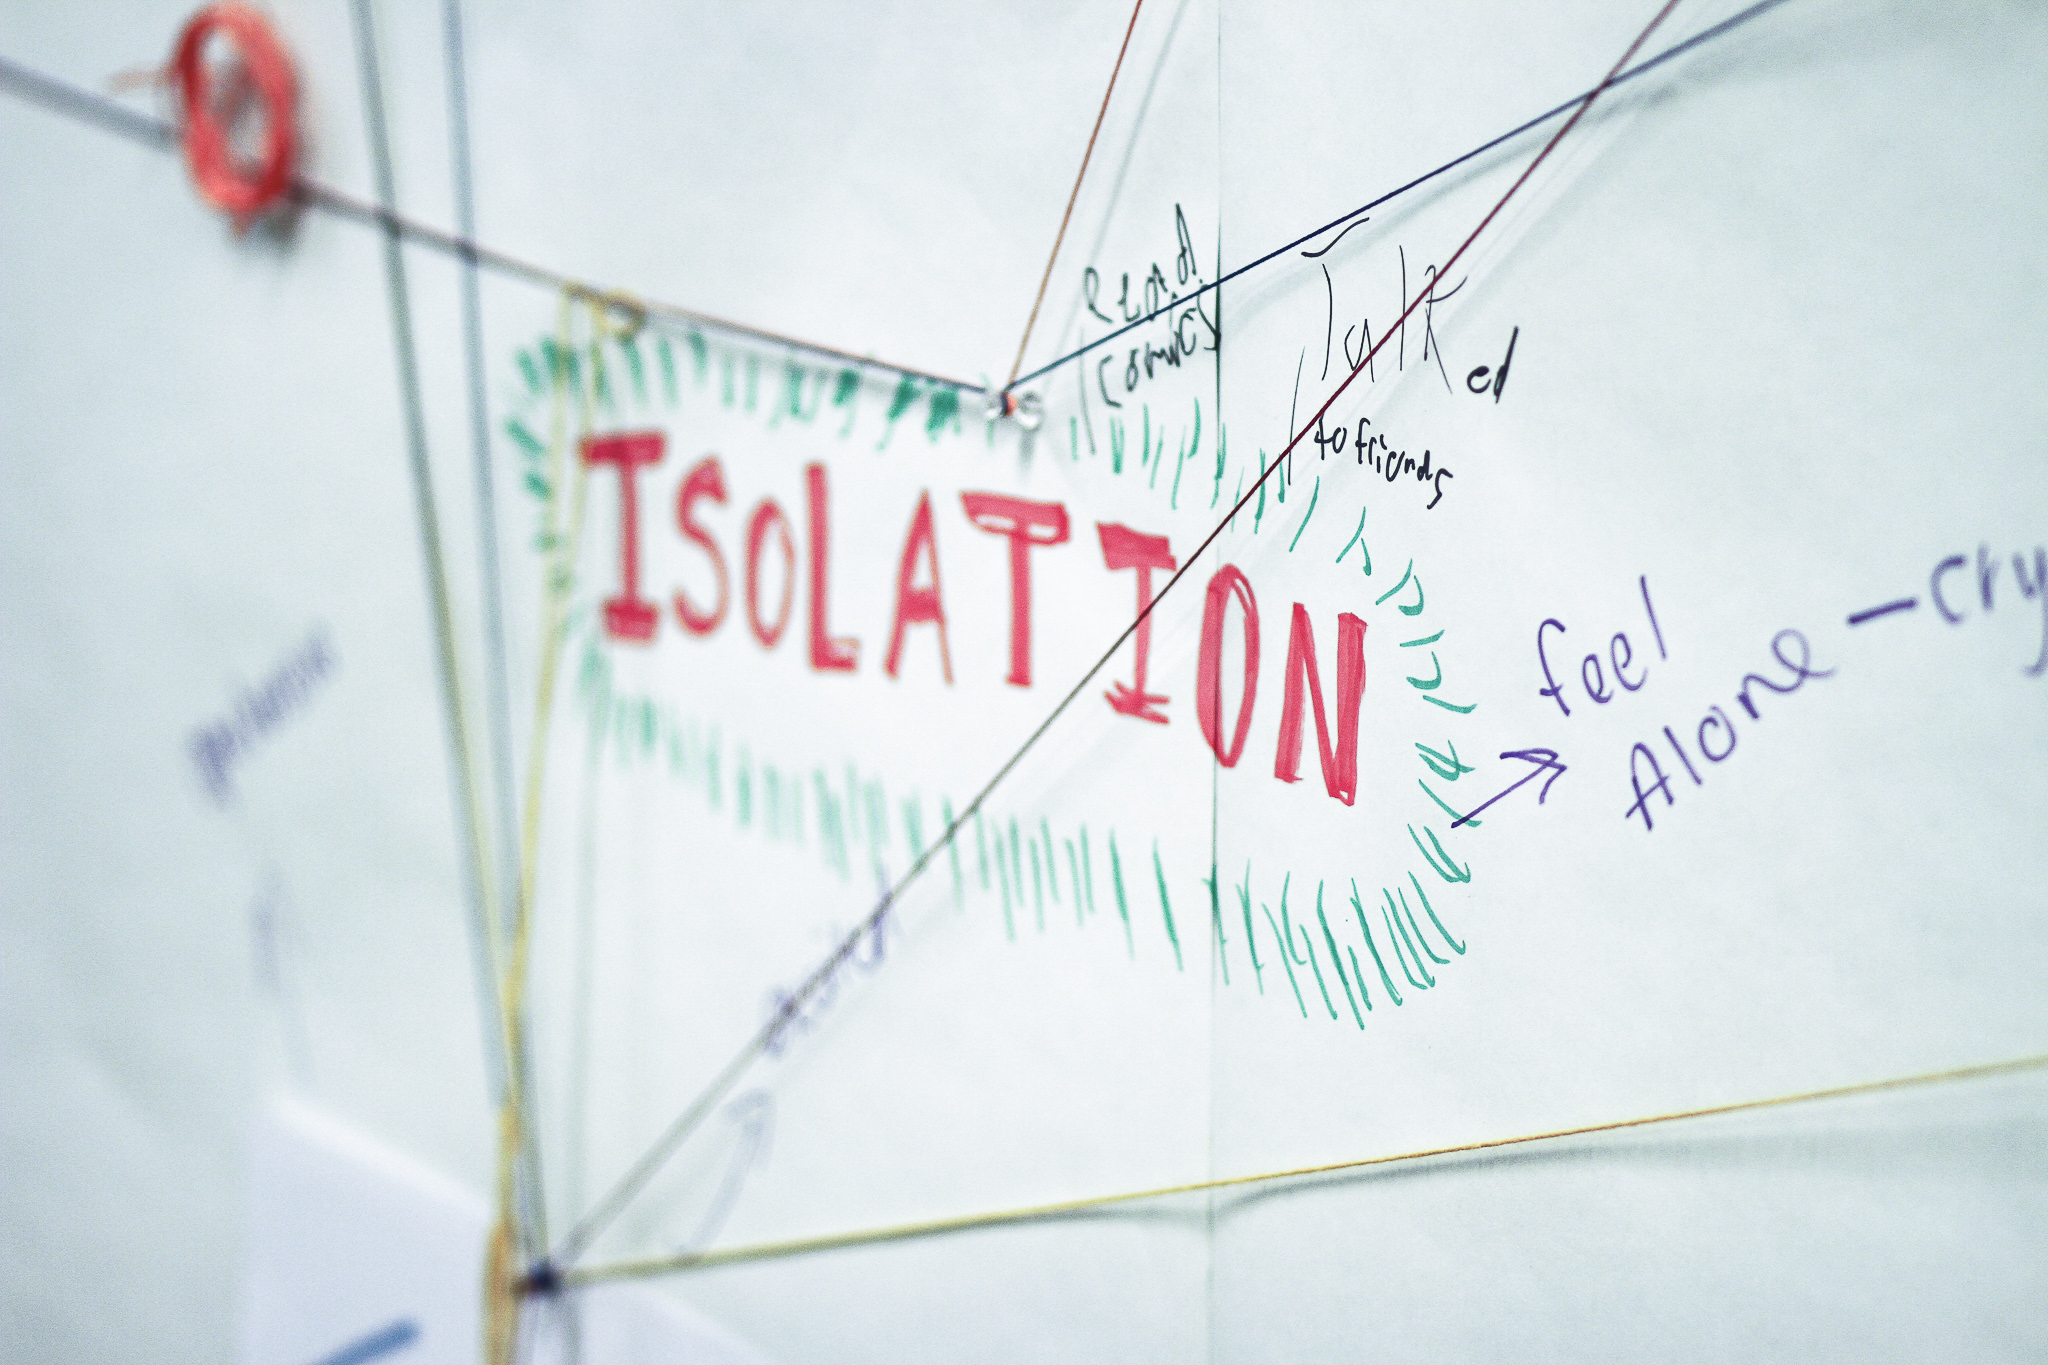 Read!
comics
Talked
to friends
ISOLATION
feel
Alone - cry